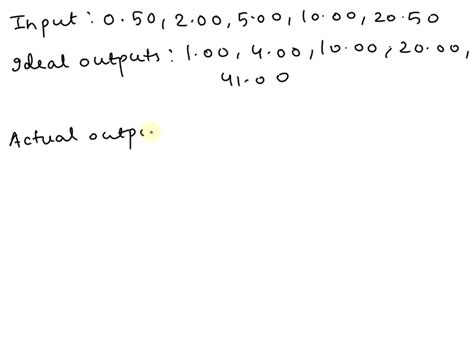 Input : 0.50, 2.00, 5.00, 10.00, 20.50
Ideal outputs : 1.00, 4.00, 10.00, 20.00,
41.00
Actual outpu